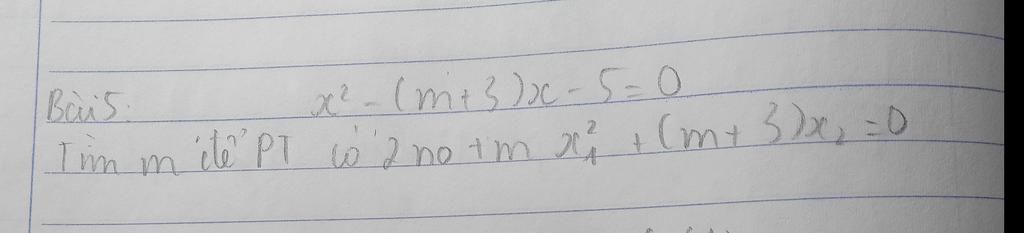 Bài 5: x² - (m+3)x - 5 = 0
Tìm m để PT có 2 no t/m x₁² + (m+3)x₂ = 0